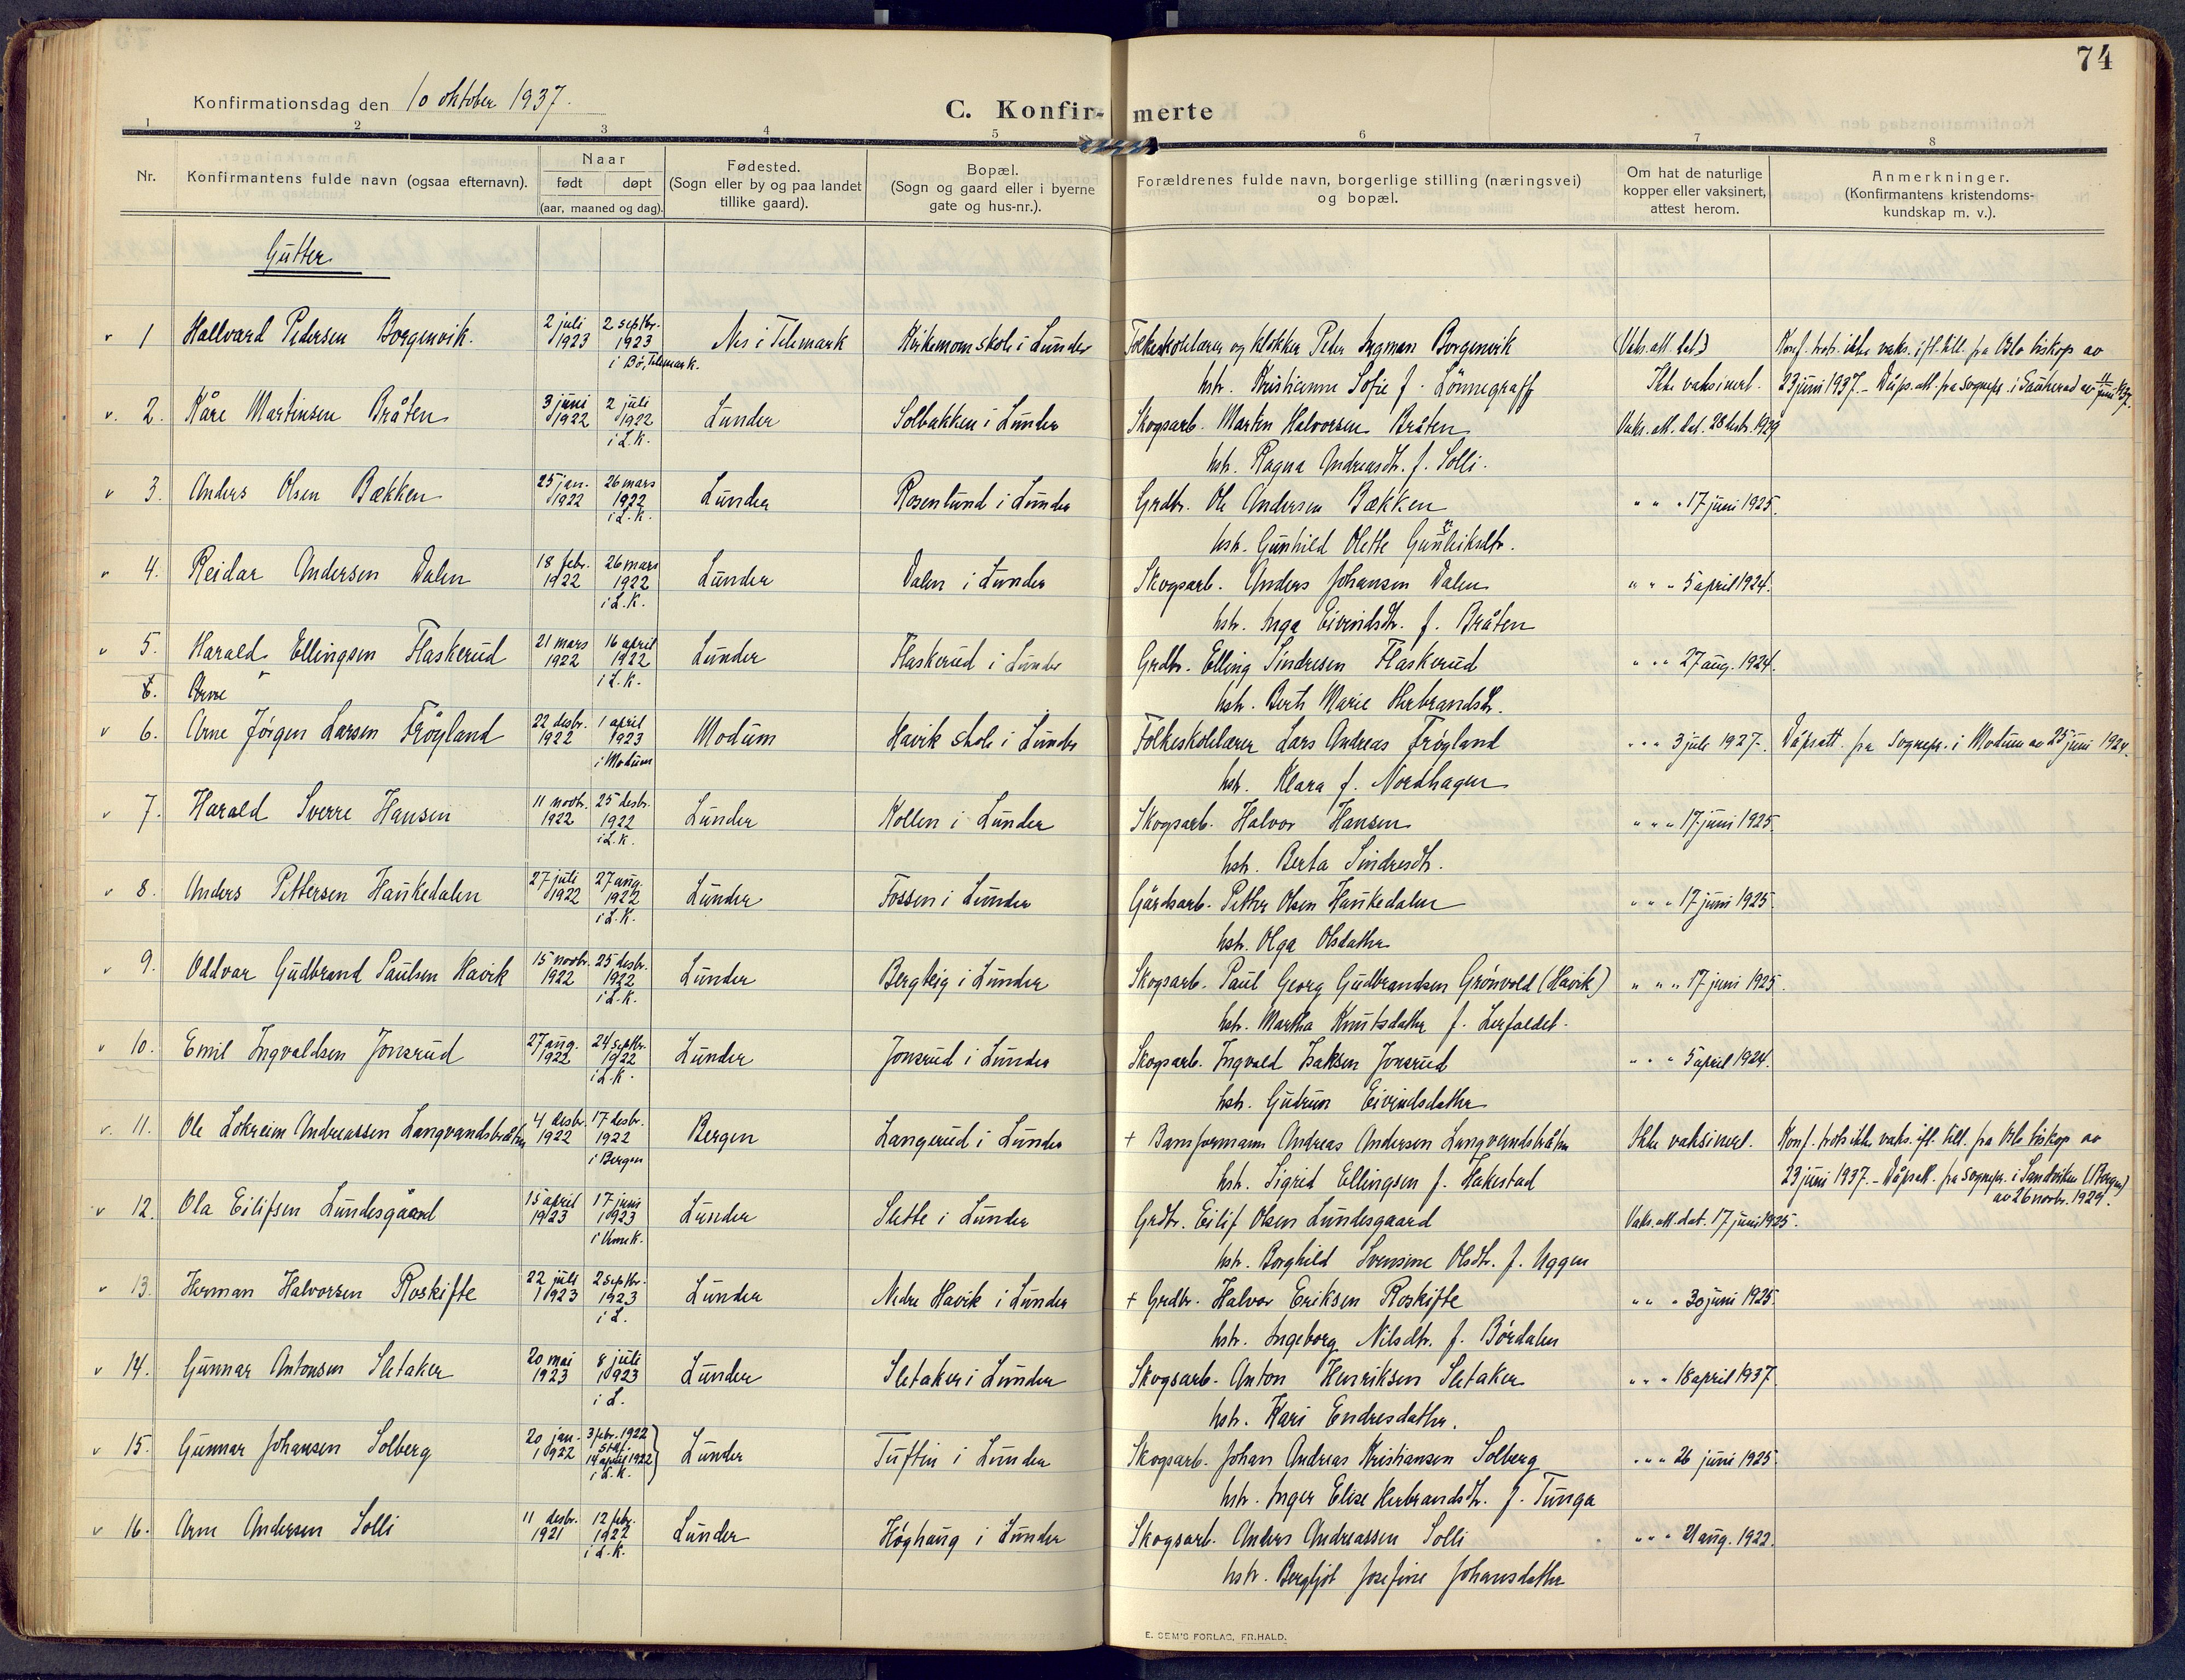 74
Konfirmationsdag den 10 oktober 1937.
C. Konfir- merte
1 2 3 4 5 6 7 8
Nr.
Konfirmantens fulde navn (ogsaa efternavn).
Naar
født døpt
(aar, maaned og dag).
Fødested.
(Sogn eller by og paa landet
tillike gaard).
Bopæl.
(Sogn og gaard eller i byerne
gate og hus-nr.).
Forældrenes fulde navn, borgerlige stilling (næringsvei)
og bopæl.
Om hat de naturlige
kopper eller vaksinert,
attest herom.
Anmerkninger.
(Konfirmantens kristendoms-
kundskap m. v.).
Gutter
v 1 Hallvard Pedersen Borgenvik. 2 juli 1923 2 septbr. 1923 i Bø, Telemark. Nes i Telemark Kirkemom skole i Lunder Folkeskolelærer og klokker Peder Ingman Borgenvik
hstr. Kristianne Sofie f. Lönnegraff
Ikke vaksinert.
Konf. trots ikke vaks. ifl. till. fra Oslo biskop av
23 juni 1937. - Dåps.att. fra sognepr. i Sauherad av 11 juni 1937.
v. 2. Kåre Martinsen Bråten 3 juni 1922 2 juli 1922 i L.K. Lunder Solbakken i Lunder Skogsarb. Martin Halvorsen Bråten Vaks. att. dat. 28 desbr. 1929
hstr. Ragna Andreasdtr. f. Solli.
v 3. Anders Olsen Bækken 25 jan. 1922 26 mars 1922 i L.K. Lunder Rosenlund i Lunder Grdbr. Ole Andersen Bækken " " " 17 juni 1925.
hstr. Gunhild Olette Gunleiksdtr.
v 4. Reidar Andersen Dalen 18 febr. 1922 26 mars 1922 i L.K. Lunder Dalen i Lunder Skogsarb. Anders Johansen Dalen " " " 5 april 1924.
hstr. Inga Eivindsdtr. f. Bråten
v 5. Harald Ellingsen Flaskerud 21 mars 1922 16 april 1922 i L.K. Lunder Flaskerud i Lunder Grdbr. Elling Sindresen Flaskerud " " " 27 aug. 1924.
6. Arne
hstr. Berte Marie Herbrandsdtr.
v 6. Arne Jörgen Larsen Fröyland 22 desbr. 1922 1 april 1923 i Modum Modum Havik skole i Lunder Folkeskolelærer Lars Andreas Fröyland " " " 3 jule 1927. Dåpsatt. fra sognepr. i Modum av 25 juni 1924.
hstr. Klara f. Nordhagen
v 7. Harald Sverre Hansen 11 novbr. 1922 25 desbr. 1922 i L.K. Lunder Kollen i Lunder Skogsarb. Halvor Hansen " " " 17 juni 1925.
hstr. Berta Sindresdtr.
v 8. Anders Pettersen Haukedalen 27 juli 1922 27 aug. 1922 i L.K. Lunder Fossen i Lunder Gårdsarb. Petter Olsen Haukedalen " " " 17 juni 1925.
hstr. Olga Olsdatter
v 9. Oddvar Gudbrand Paulsen Havik 15 novbr. 1922 25 desbr. 1922 i L.K. Lunder Bergteig i Lunder Skogsarb. Paul Georg Gudbrandsen Grönvold (Havik) " " " 17 juni 1925.
hstr. Martha Knutsdatter f. Lerfaldet.
v 10. Emil Ingvaldsen Jonsrud 27 aug. 1922 24 septbr. 1922 i L.K. Lunder Jonsrud i Lunder Skogsarb. Ingvald Isaksen Jonsrud " " " 5 april 1924.
hstr. Gudrun Eivindsdatter
v. 11. Ole Lokreim Andreassen Langvandsbråten 4 desbr. 1922 17 desbr. 1922 i Bergen Bergen Langerud i Lunder + Baneformann Andreas Andersen Langvandsbråten Ikke vaksinert. Konf. trots ikke vaks. ifl. till. fra Oslo biskop av
hstr. Sigrid Ellingsen f. Hakestad 23 juni 1937. - Dåpsatt. fra sognepr. i Sandviken (Bergen)
av 26 novbr. 1929.
v 12. Ola Eilifsen Lundesgaard 15 april 1923 17 juni 1923 Lunder Slette i Lunder Grdbr. Eilif Olsen Lundesgaard Vaks. att. dat. 17 juni 1925.
hstr. Borghild Svensine Olsdtr. f. Uggen
v 13. Herman Halvorsen Roskifte 22 juli 1923 2 septbr. 1923 i L. Lunder Nedre Havik i Lunder + Grdbr. Halvor Eriksen Roskifte " " " 30 juni 1925.
hstr. Ingeborg Nilsdtr. f. Bördalen
v 14. Gunnar Antonsen Sletaker 20 mai 1923 8 juli 1923 i L. Lunder Sletaker i Lunder Skogsarb. Anton Henriksen Sletaker " " " 18 april 1937.
hstr. Kari Endresdatter.
v 15. Gunnar Johansen Solberg 20 jan. 1922 3 febr. 1922 stad. 14 april 1922 i L.K. Lunder Tuftin i Lunder Skogsarb. Johan Andreas Kristiansen Solberg " " " 26 juni 1925.
hstr. Inger Elise Herbrandsdtr. f. Tunga
v 16. Arne Andersen Solli 11 desbr. 1921 12 febr. 1922 i L.K. Lunder Höghaug i Lunder Skogsarb. Anders Andreassen Solli " " " 21 aug. 1922.
hstr. Bergljot Josefine Johansdatter
E. SEM'S FORLAG, FR.HALD.